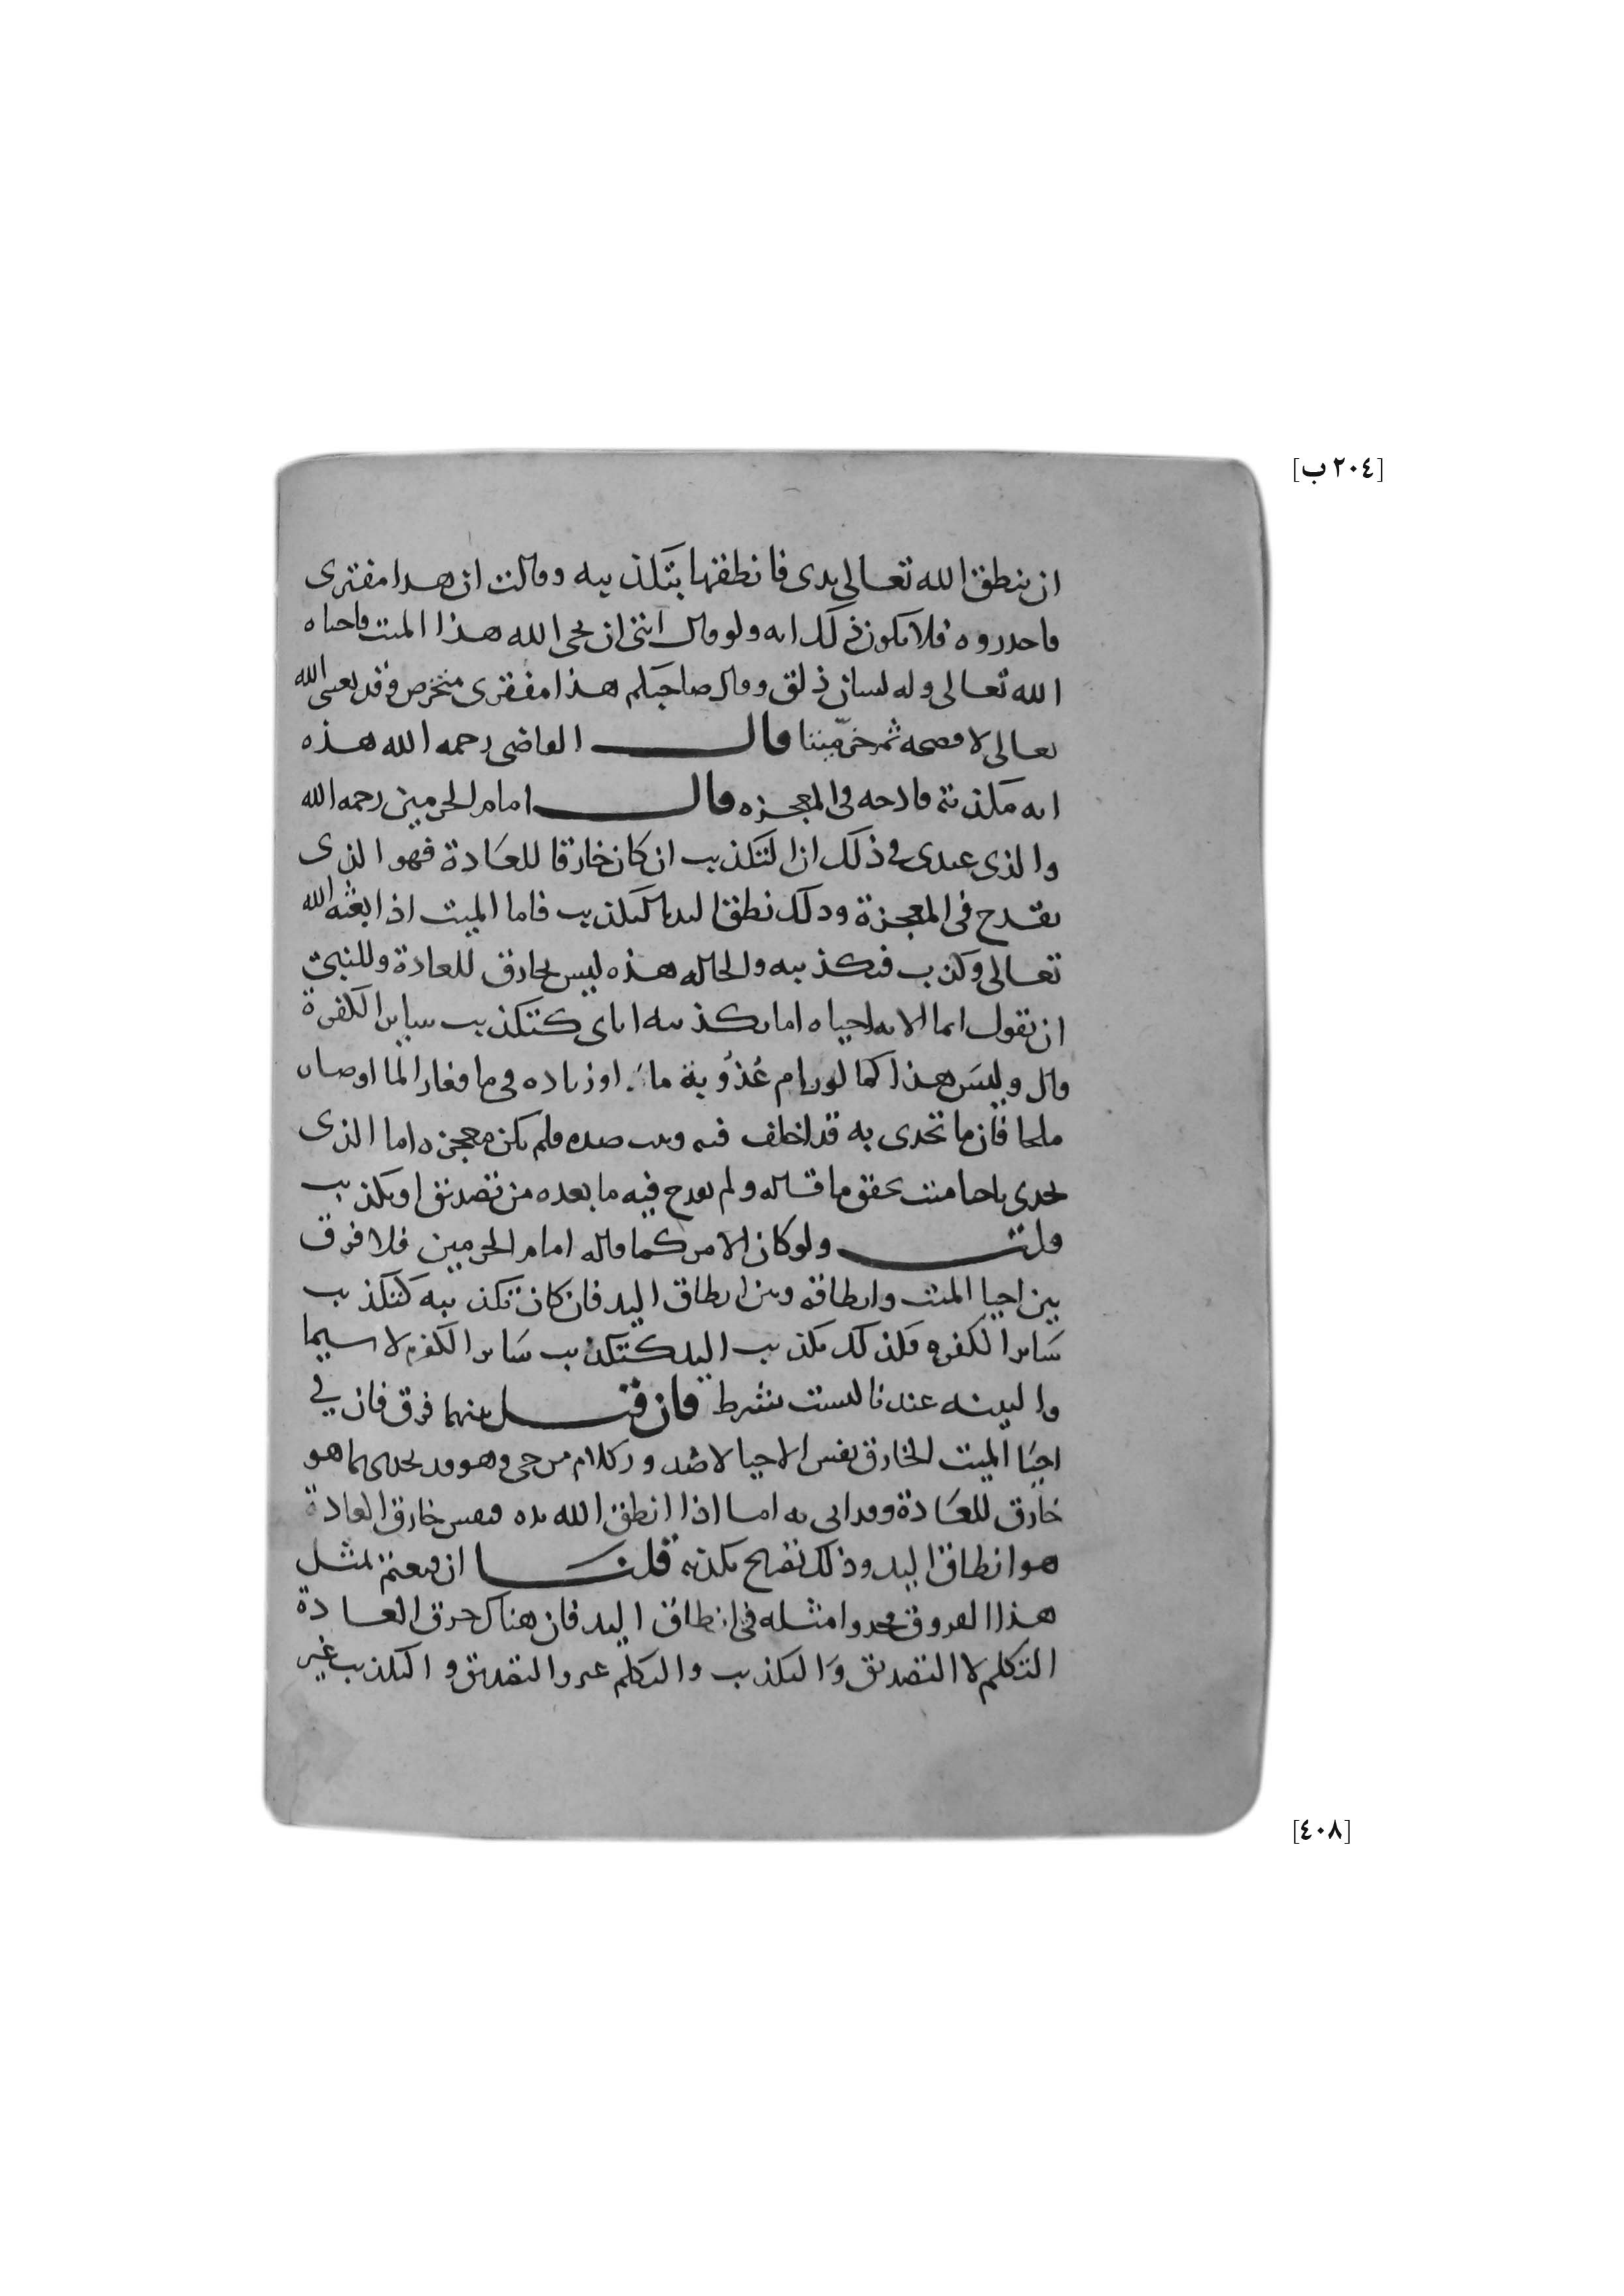 [٢٠٤ ب]
ان ينطق الله تعالى يدى فانطقها بتكذيبه وقالت ان هذا مفترى
فاحذروه فلا يكون ذلك ايه ولو قال ايتى ان يحى الله هذا الميت فاحياه
الله تعالى وله لسان ذلق وقال صاحبكم هذا مفترى متخرص وقد بعثنى الله
تعالى لافضحه ثم خر ميتا قال القاضى رحمه الله هذه
ايه مكذبته قادحه فى المعجزه قال امام الحرمين رحمه الله
والذى عندى فى ذلك ان التكذيب ان كان خارقا للعادة فهو الذى
يقدح فى المعجزة وذلك نطق اليد بالتكذيب فاما الميت اذا بعثه الله
تعالى وكذب فتكذيبه والحاله هذه ليس بخارق للعادة وللنبى
ان يقول انما الايه احياه اما تكذيبه اياى كتكذيب ساير الكفرة
قال وليس هذا كما لو رام عذوبة ماء او زياده فى ما فغار الما او صار
ملحا فان ما تحدى به قد اخلف فيه وثبت ضده فلم يكن معجزه اما الذى
تحدى باحيا ميت تحقق ما قاله ولم يقدح فيه ما بعده من تصديق او تكذيب
قلت ولو كان الامر كما قاله امام الحرمين فلا فرق
بين احيا الميت وانطاقه وبين انطاق اليد فان كان تكذيبه كتكذيب
ساير الكفره فكذلك تكذيب اليد كتكذيب ساير الكفره لا سيما
والبنيه عندنا ليست بشرط فان قيل بينهما فرق فان في
احيا الميت الخارق نفس الاحيا لا صدور كلام من حى وهو قد تحدى بما هو
خارق للعادة وقد اتى به اما اذا انطق الله يده فنفس خارق العادة
هو انطاق اليد وذلك نفسه تكذيبه قلنا ان قنعتم بمثل
هذا الفروق فخذوا مثله فى انطاق اليد فان هناك خرق العادة
التكلم لا التصديق والتكذيب والتكلم غير والتصديق والتكذيب غير
[٤٠٨]